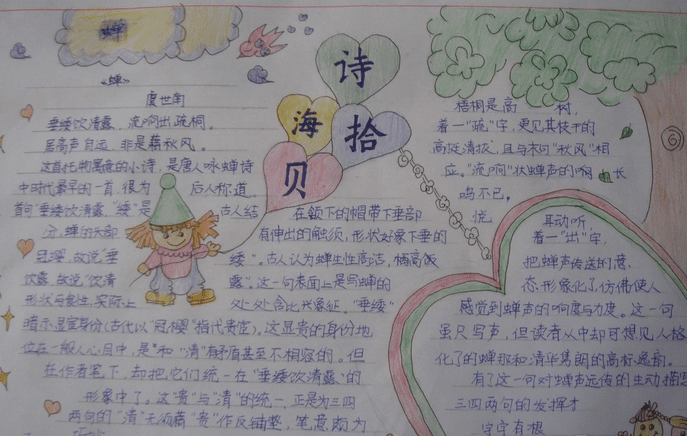 蝉
诗
海
拾
贝
《蝉》
虞世南
垂緌饮清露，流响出疏桐。
居高声自远，非是藉秋风。
这首托物寓意的小诗，是唐人咏蝉诗
中时代最早的一首，很为 后人称道。
首句"垂緌饮清露"，"緌"是 古人结
在颔下的帽带下垂部
分，蝉的头部 有伸出的触须，形状好象下垂的
冠缨，故说"垂 緌"。古人认为蝉生性高洁，栖高饮
饮露，故说"饮清 露"。这一句表面上是写蝉的
形状与食性，实际上 处处含比兴象征。"垂緌"
暗示显宦身份(古代以"冠缨"指代贵宦)。这显贵的身份地
位在一般人心目中，是和"清"有矛盾甚至不相容的。但
在作者笔下，却把它们统一在"垂緌饮清露"的
形象中了。这"贵"与"清"的统一，正是为三四
两句的"清"无须藉"贵"作反铺垫，笔意颇为
梧桐是高 树，
着一"疏"字，更见其枝干的
高挺清拔，且与末句"秋风"相
应。"流响"状蝉声的 长
鸣不已，
悦 耳动听，
着一"出"字，
把蝉声传送的意
态形象化了，仿佛使人
感觉到蝉声的响度与力度。这一句
虽只写声，但读者从中却可想见人格
化了的蝉那和清华隽朗的高标逸韵。
有了这一句对蝉声远传的生动描
三四两句的发挥才
字字有根